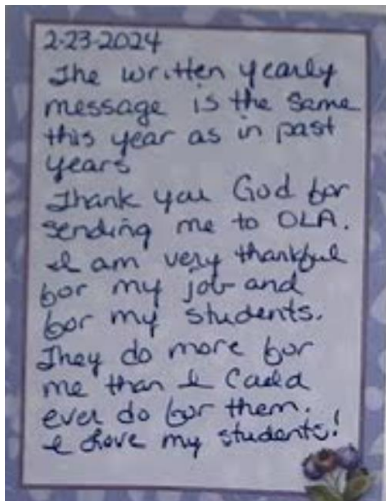 2-23-2024
The written yearly
message is the same
this year as in past
years
Thank you God for
sending me to OLA.
I am very thankful
for my job and
for my students.
They do more for
me than I could
ever do for them.
I love my students!